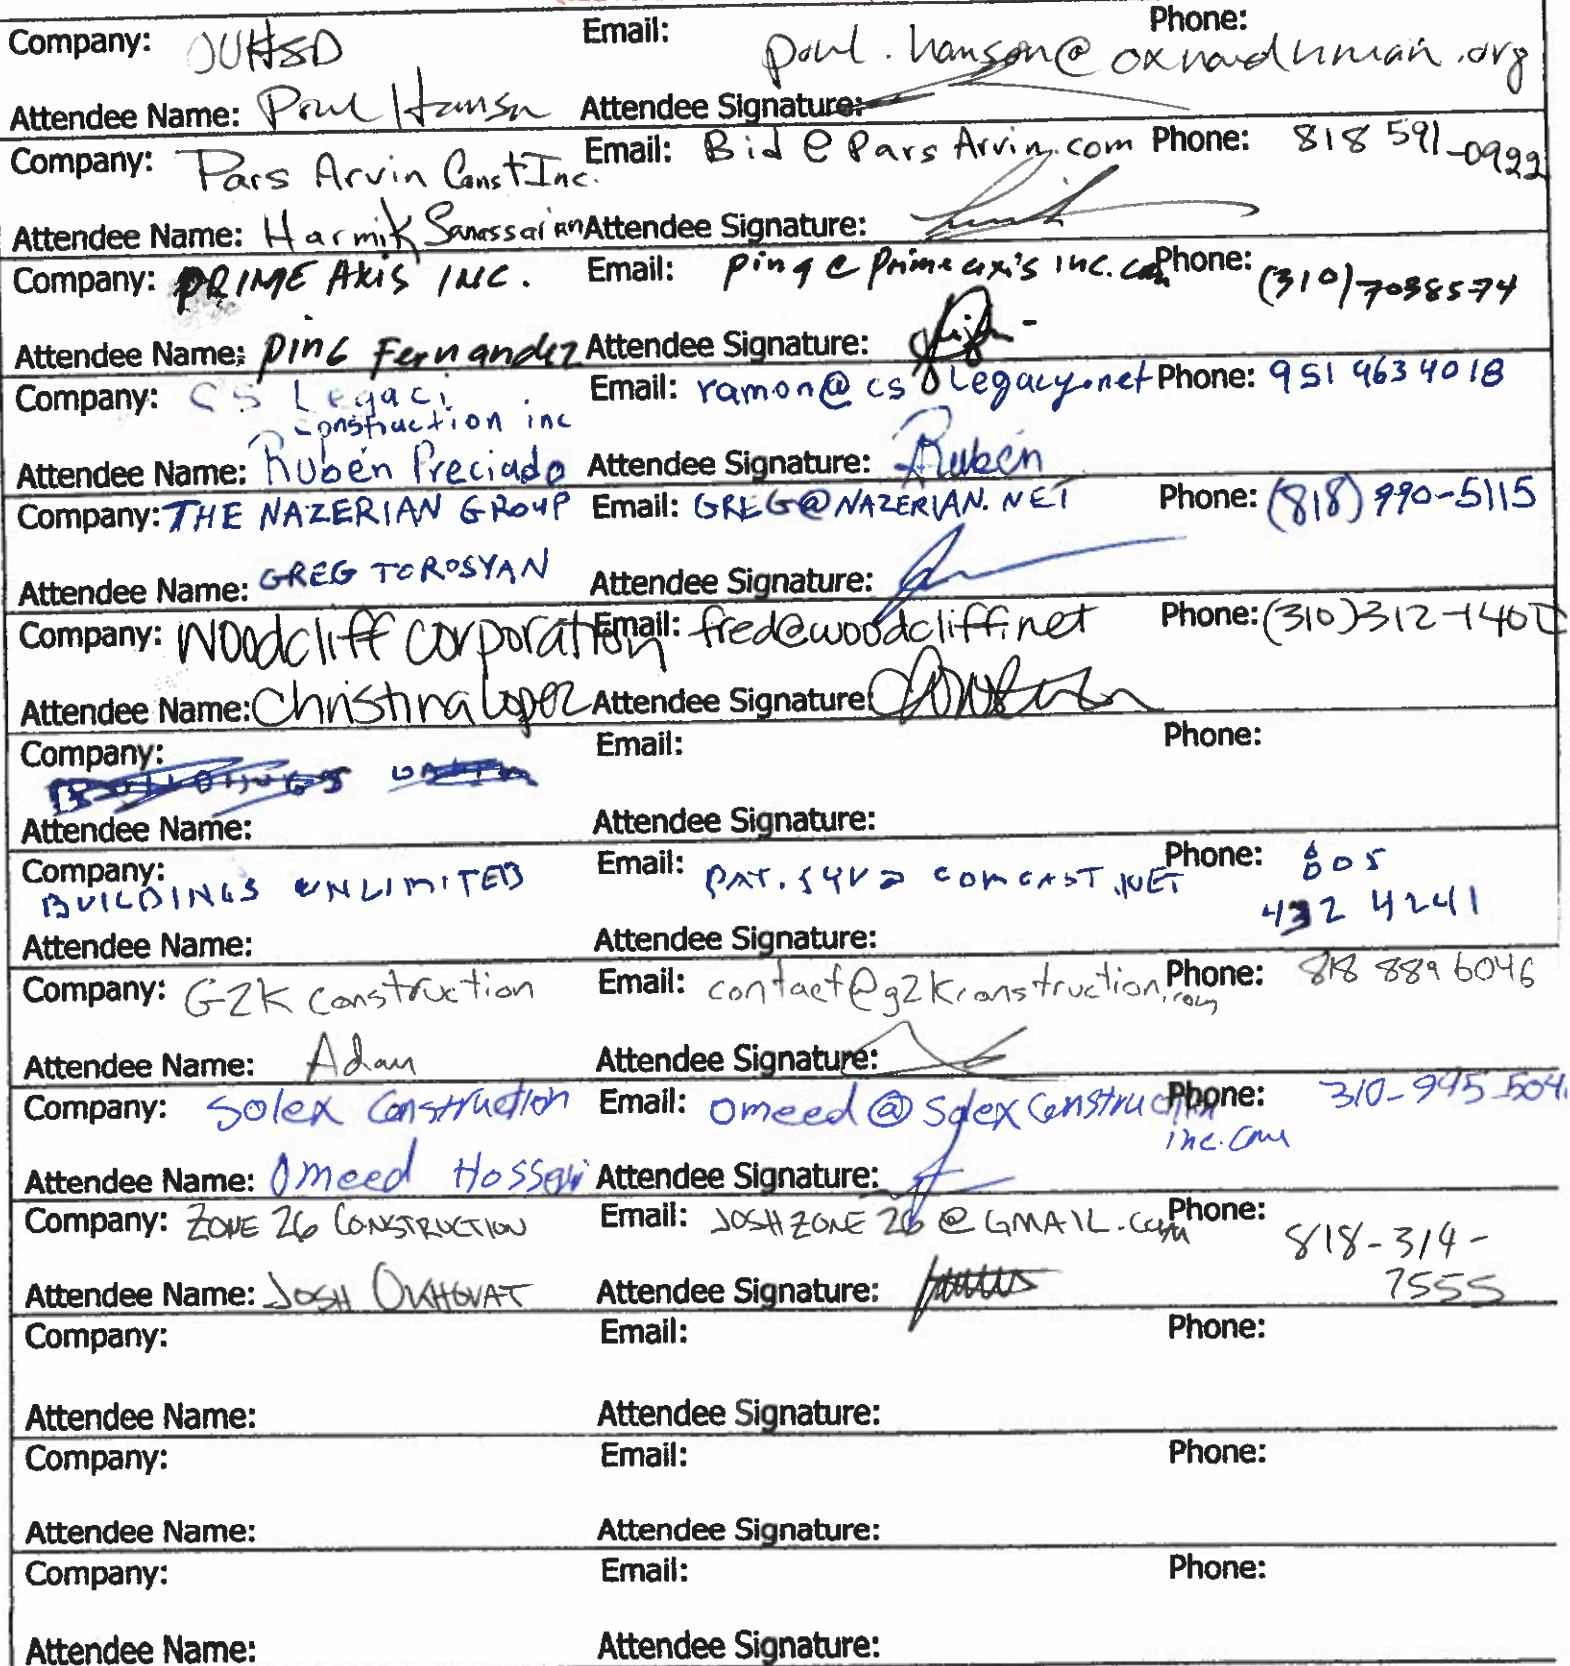 Company: OUHSD Email: paul.hanson@oxnardunion.org Phone:
Attendee Name: Paul Hanson Attendee Signature:
Company: Pars Arvin Const Inc. Email: Bid@ParsArvin.com Phone: 818 591-0922
Attendee Name: Harmik Sanassarian Attendee Signature:
Company: PRIME AXIS INC. Email: ping@primeaxis inc.com Phone: (310)7098574
Attendee Name: PING Fernandez Attendee Signature:
Company: CS Legaci Email: ramon@cslegacy.net Phone: 951 463 4018
Construction inc
Attendee Name: Rubén Preciado Attendee Signature: Rubén
Company: THE NAZERIAN GROUP Email: GREG@NAZERIAN.NET Phone: (818) 990-5115
Attendee Name: GREG TOROSYAN Attendee Signature:
Company: Woodcliff Corporation Email: fred@woodcliff.net Phone: (310)312-1400
Attendee Name: Christina Lopez Attendee Signature:
Company: Email: Phone:
Attendee Name: Attendee Signature:
Company: BUILDINGS UNLIMITED Email: PAT.SYV@COMCAST.NET Phone: 805
432 4241
Attendee Name: Attendee Signature:
Company: G2K Construction Email: contact@g2kconstruction.com Phone: 818 889 6046
Attendee Name: Adam Attendee Signature:
Company: Solex Construction Email: Omeed@SolexConstruction Phone: 310-945-504
inc.com
Attendee Name: Omeed Attendee Signature:
Company: ZONE 26 CONSTRUCTION Email: JOSHZONE26@GMAIL.COM Phone:
818-314-
7555
Attendee Name: JOSH OKHOVAT Attendee Signature:
Company: Email: Phone:
Attendee Name: Attendee Signature:
Company: Email: Phone:
Attendee Name: Attendee Signature:
Company: Email: Phone:
Attendee Name: Attendee Signature: